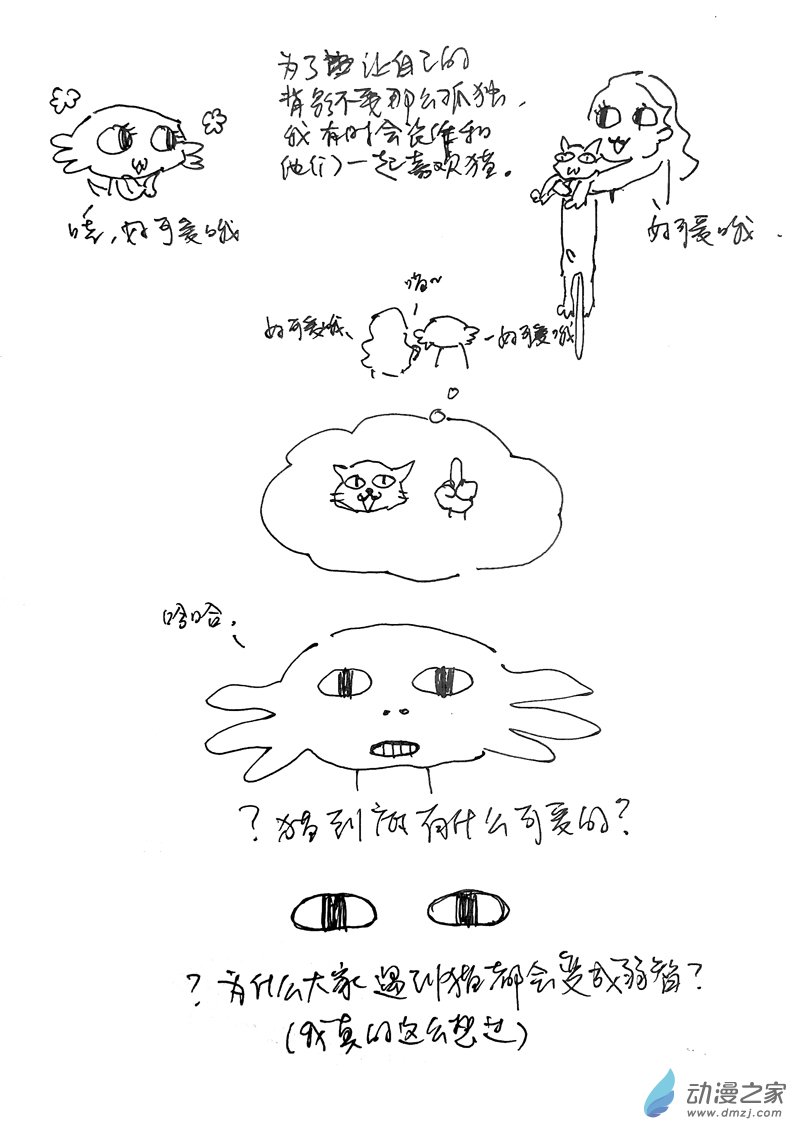 为了让自己的
背影不要那么孤独，
我有时会假惺和
他们一起喜欢猫。
哇，好可爱哦
好可爱哦
哈~
好可爱哦、
好可爱哦
哈哈，
？猫到底有什么可爱的？
？为什么大家遇到猫都会变成弱智？
（我真的这么想过）
动漫之家
www.dmzj.com